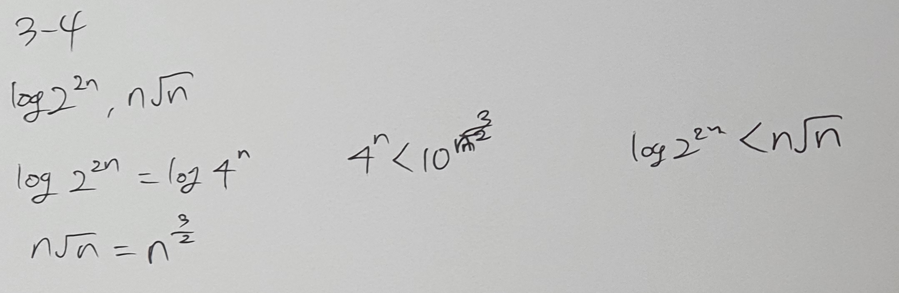 3-4
log 2^{2n}, n√n
log 2^{2n} = log 4^n
n√n = n^{3/2}
4^n < 10^{n^{3/2}}
log 2^{2n} < n√n